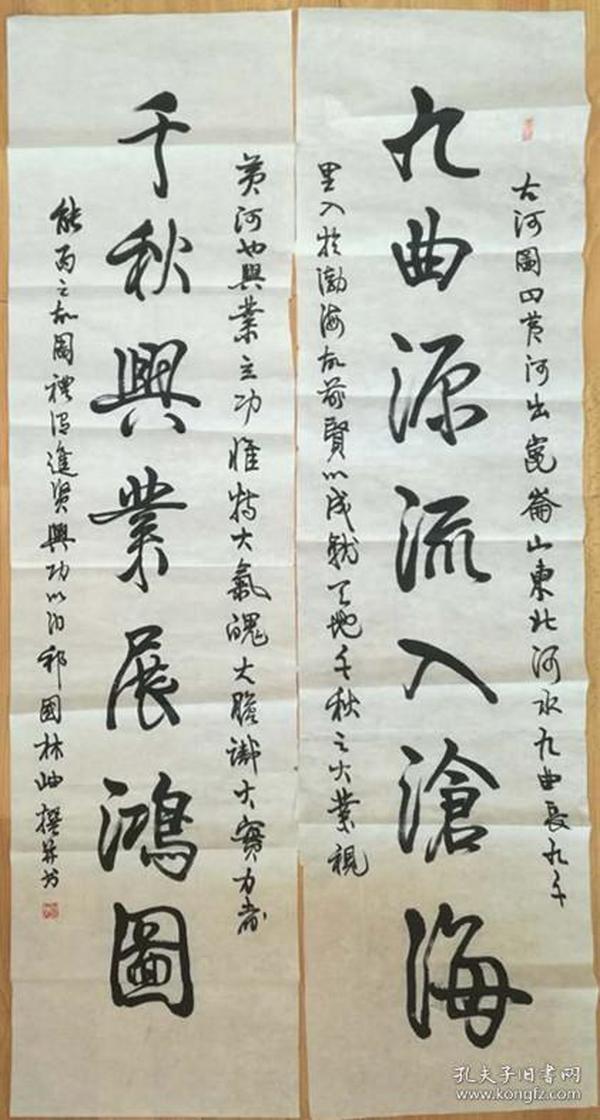 古河圖四黃河出崑崙山東北河水九曲長九千
九曲源流入滄海
里入於渤海故前賢以成就天地千秋之大業視
黃河也興業立功惟特大氣魄大膽識大實力者
千秋興業展鴻圖
能為之故周禮謂進賢興功以治邦國林岫撰并書
孔夫子旧书网
www.kongfz.com